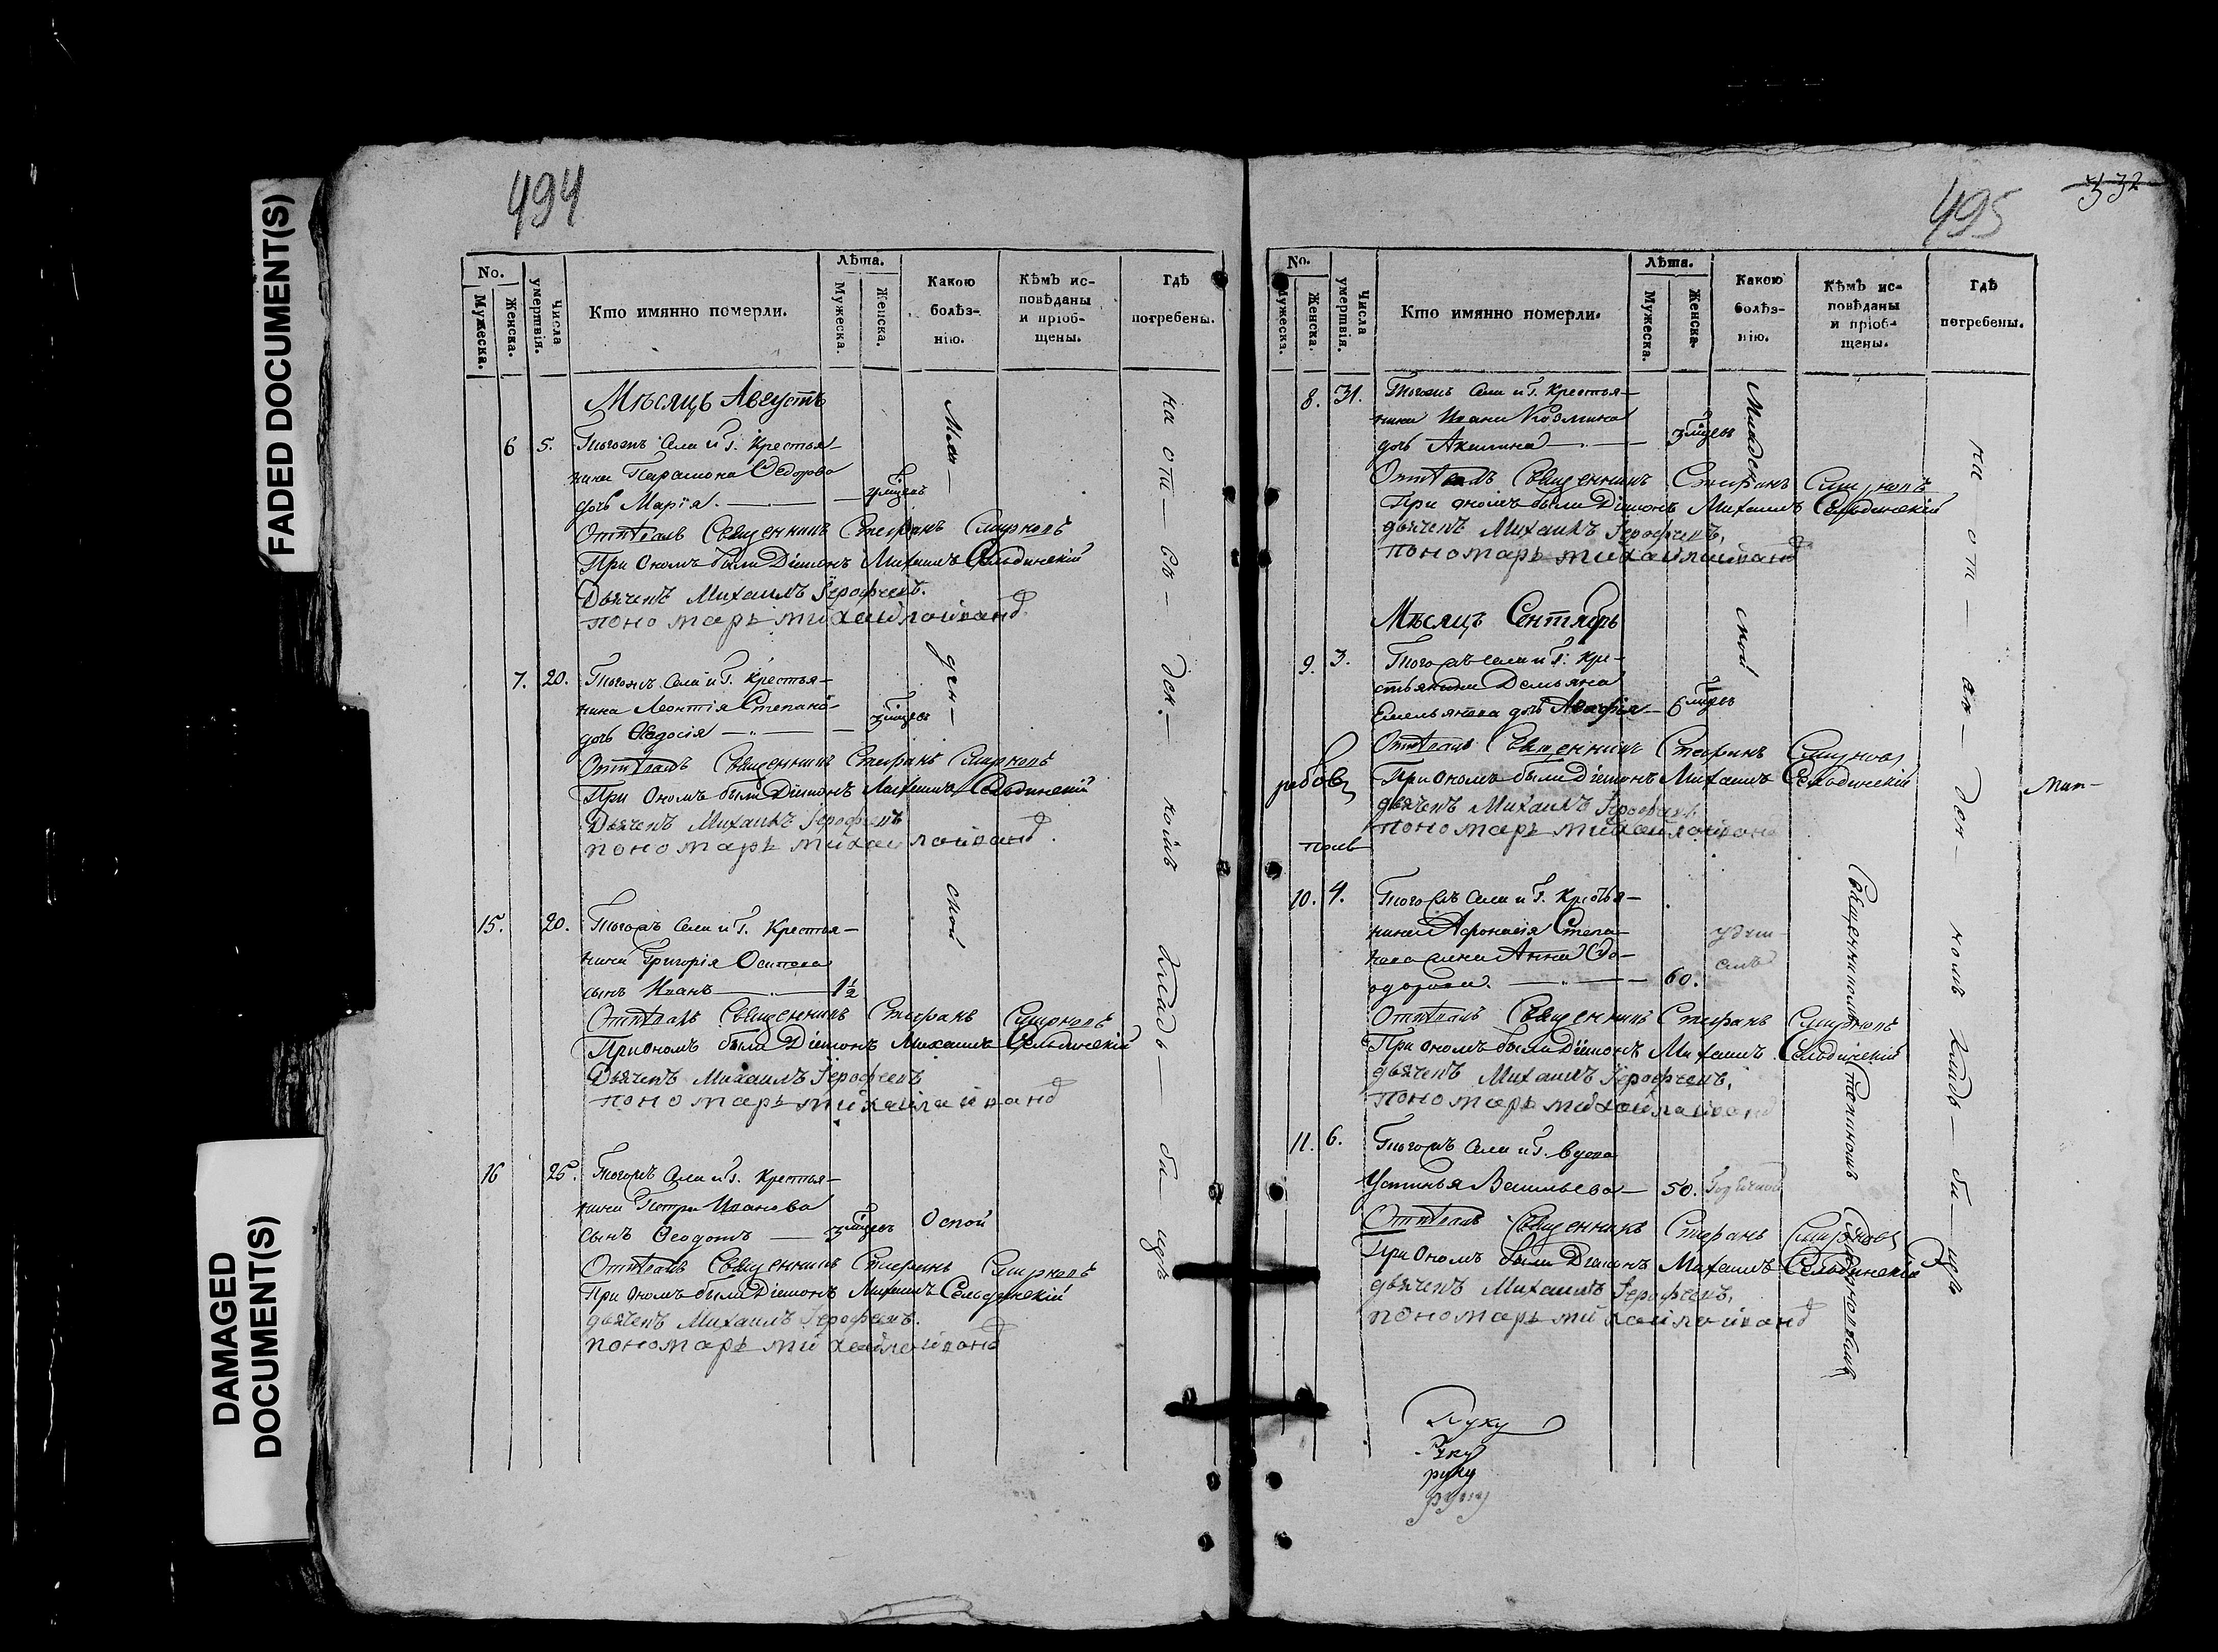 FADED DOCUMENT(S)
DAMAGED DOCUMENT(S)
494
No.
Мужеска.
Женска.
Числа умертвія.
Кто имянно померли.
Лѣта.
Мужеска.
Женска.
Какою болѣз-
нію.
Кѣмъ ис-
повѣданы
и пріоб-
щены.
Гдѣ
погребены.
Мѣсяцъ Августъ
6 5. Тогожъ Села и Г. Крестья-
нина Парамона Федорова
дочь Марія.
Отпѣвалъ Священникъ Стефанъ Смирновъ
При ономъ были Діаконъ Михаилъ Сельдинскій
Дьячекъ Михаилъ Іерофеевъ.
пономарь михайла иванъ
7. 20. Тогожъ Села и Г. Крестья-
нина Леонтія Степано-
дочь Федосія 3 мцевъ
Отпѣвалъ Священникъ Стефанъ Смирновъ
При ономъ были Діаконъ Михаилъ Сельдинскій
Дьячекъ Михаилъ Іерофеевъ
пономарь михайла иванъ
15. 20. Тогожъ Села и Г. Крестья-
нина Григорія Осипова
сынъ Иванъ 1½
Отпѣвалъ Священникъ Стефанъ Смирновъ
При ономъ были Діаконъ Михаилъ Сельдинскій
Дьячекъ Михаилъ Іерофеевъ
пономарь михайла иванъ
16 25. Тогожъ Села и Г. Крестья-
нина Петра Иванова
сынъ Феодотъ 3 мцевъ Оспой
Отпѣвалъ Священникъ Стефанъ Смирновъ
При ономъ были Діаконъ Михаилъ Сельдинскій
дьячекъ Михаилъ Іерофеевъ.
пономарь михайла иванъ
Мла-
ден-
ской
на оти-
ве-
ден-
номъ
кладъ-
би
щѣ
532
495
No.
Мужеска.
Женска.
Числа умертвія.
Кто имянно померли.
Лѣта.
Мужеска.
Женска.
Какою
болѣз-
нію.
Кѣмъ ис-
повѣданы
и пріоб-
щены.
Гдѣ
погребены.
8. 31. Тогожъ Села и Г. Крестья-
нина Ивана Козмина
дочь Акилина 3 мцевъ
Отпѣвалъ Священникъ Стефанъ Смирновъ
При ономъ были Діаконъ Михаилъ Сельдинскій
дьячекъ Михаилъ Іерофеевъ,
пономарь михайла иванъ
Мѣсяцъ Сентябрь
9. 3. Тогожъ села и Г. Кре-
стьянина Демьяна
Емельянова дочь Агафія 6 мцевъ
Отпѣвалъ Священникъ Стефанъ Смирновъ
При ономъ были Діаконъ Михаилъ Сельдинскій
дьячекъ Михаилъ Іерофеевъ.
пономарь михайла иванъ
10. 4. Тогожъ Села и Г. Крестья-
нина Афонасія Степа-
нова жена Анна Фе-
одорова. 60.
Отпѣвалъ Священникъ Стефанъ Смирновъ
При ономъ были Діаконъ Михаилъ Сельдинскій
дьячекъ Михаилъ Іерофеевъ,
пономарь михайла иванъ
11. 6. Тогожъ Села и Г. вдова
Устинья Васильева 50. Горячкой
Отпѣвалъ Священникъ Стефанъ Смирновъ
При ономъ были Діаконъ Михаилъ Сельдинскій
дьячекъ Михаилъ Іерофеевъ,
пономарь михайла иванъ
Младен
ской
Священникомъ Стефаномъ Смирновымъ
Руку
Руку
руку
руку